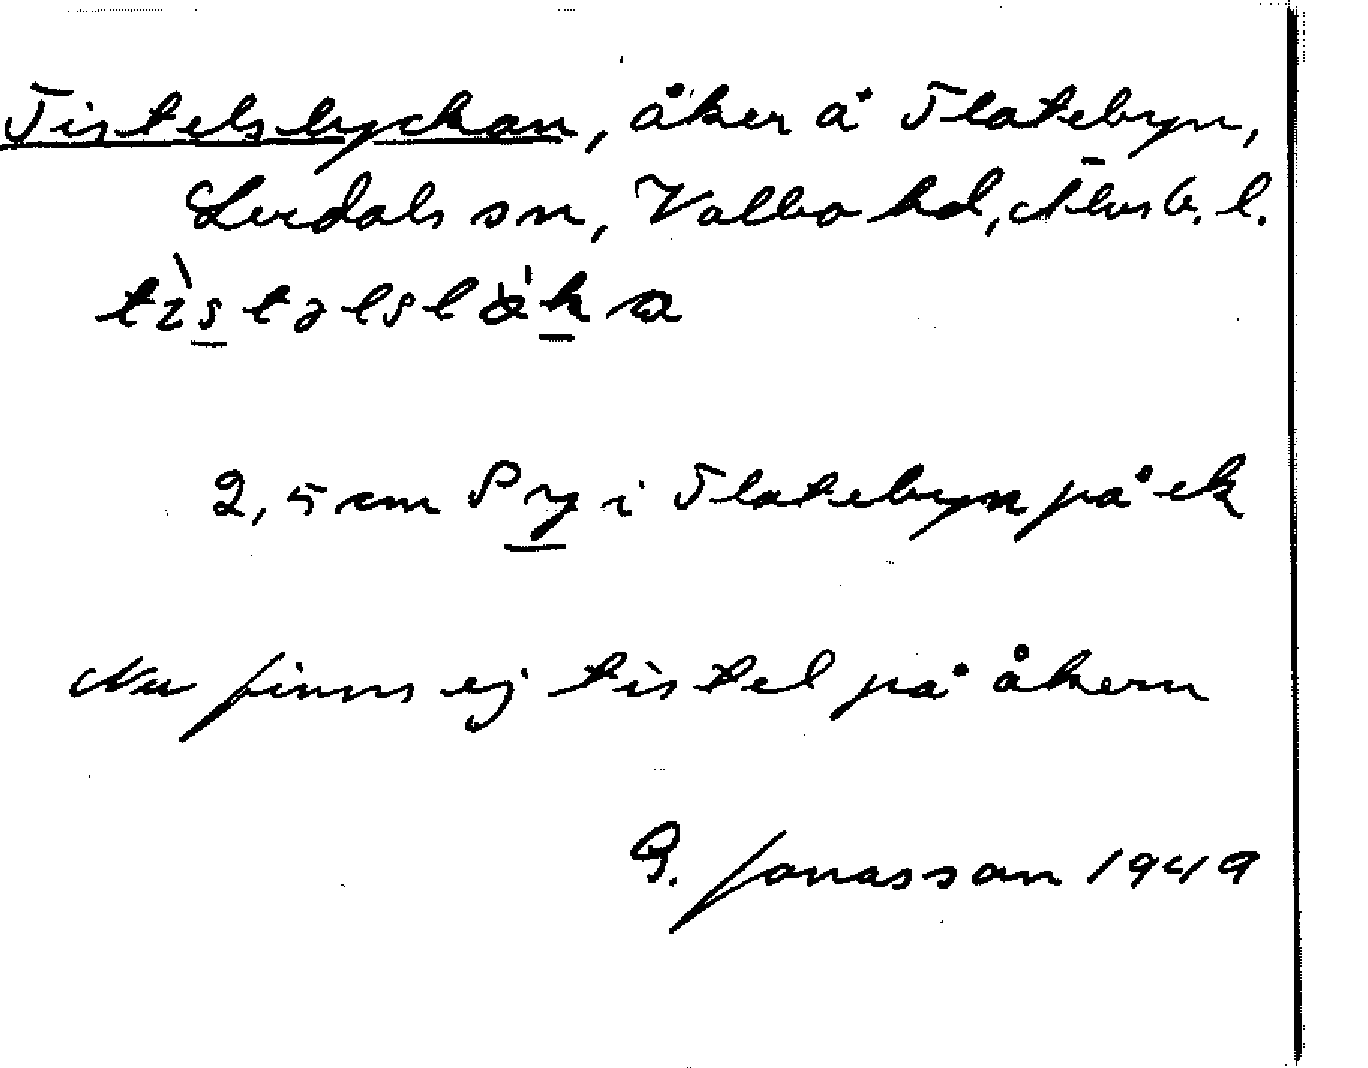 Tistelslyckan, åker å Flatebyn,
Lerdals sn, Valbo hd, Älvsb. l.
tìstəlslø̀ka
2,5 cm P ry i Flatebyn på ek
Nu finns ej tistel på åkern
G. Jonasson 1949